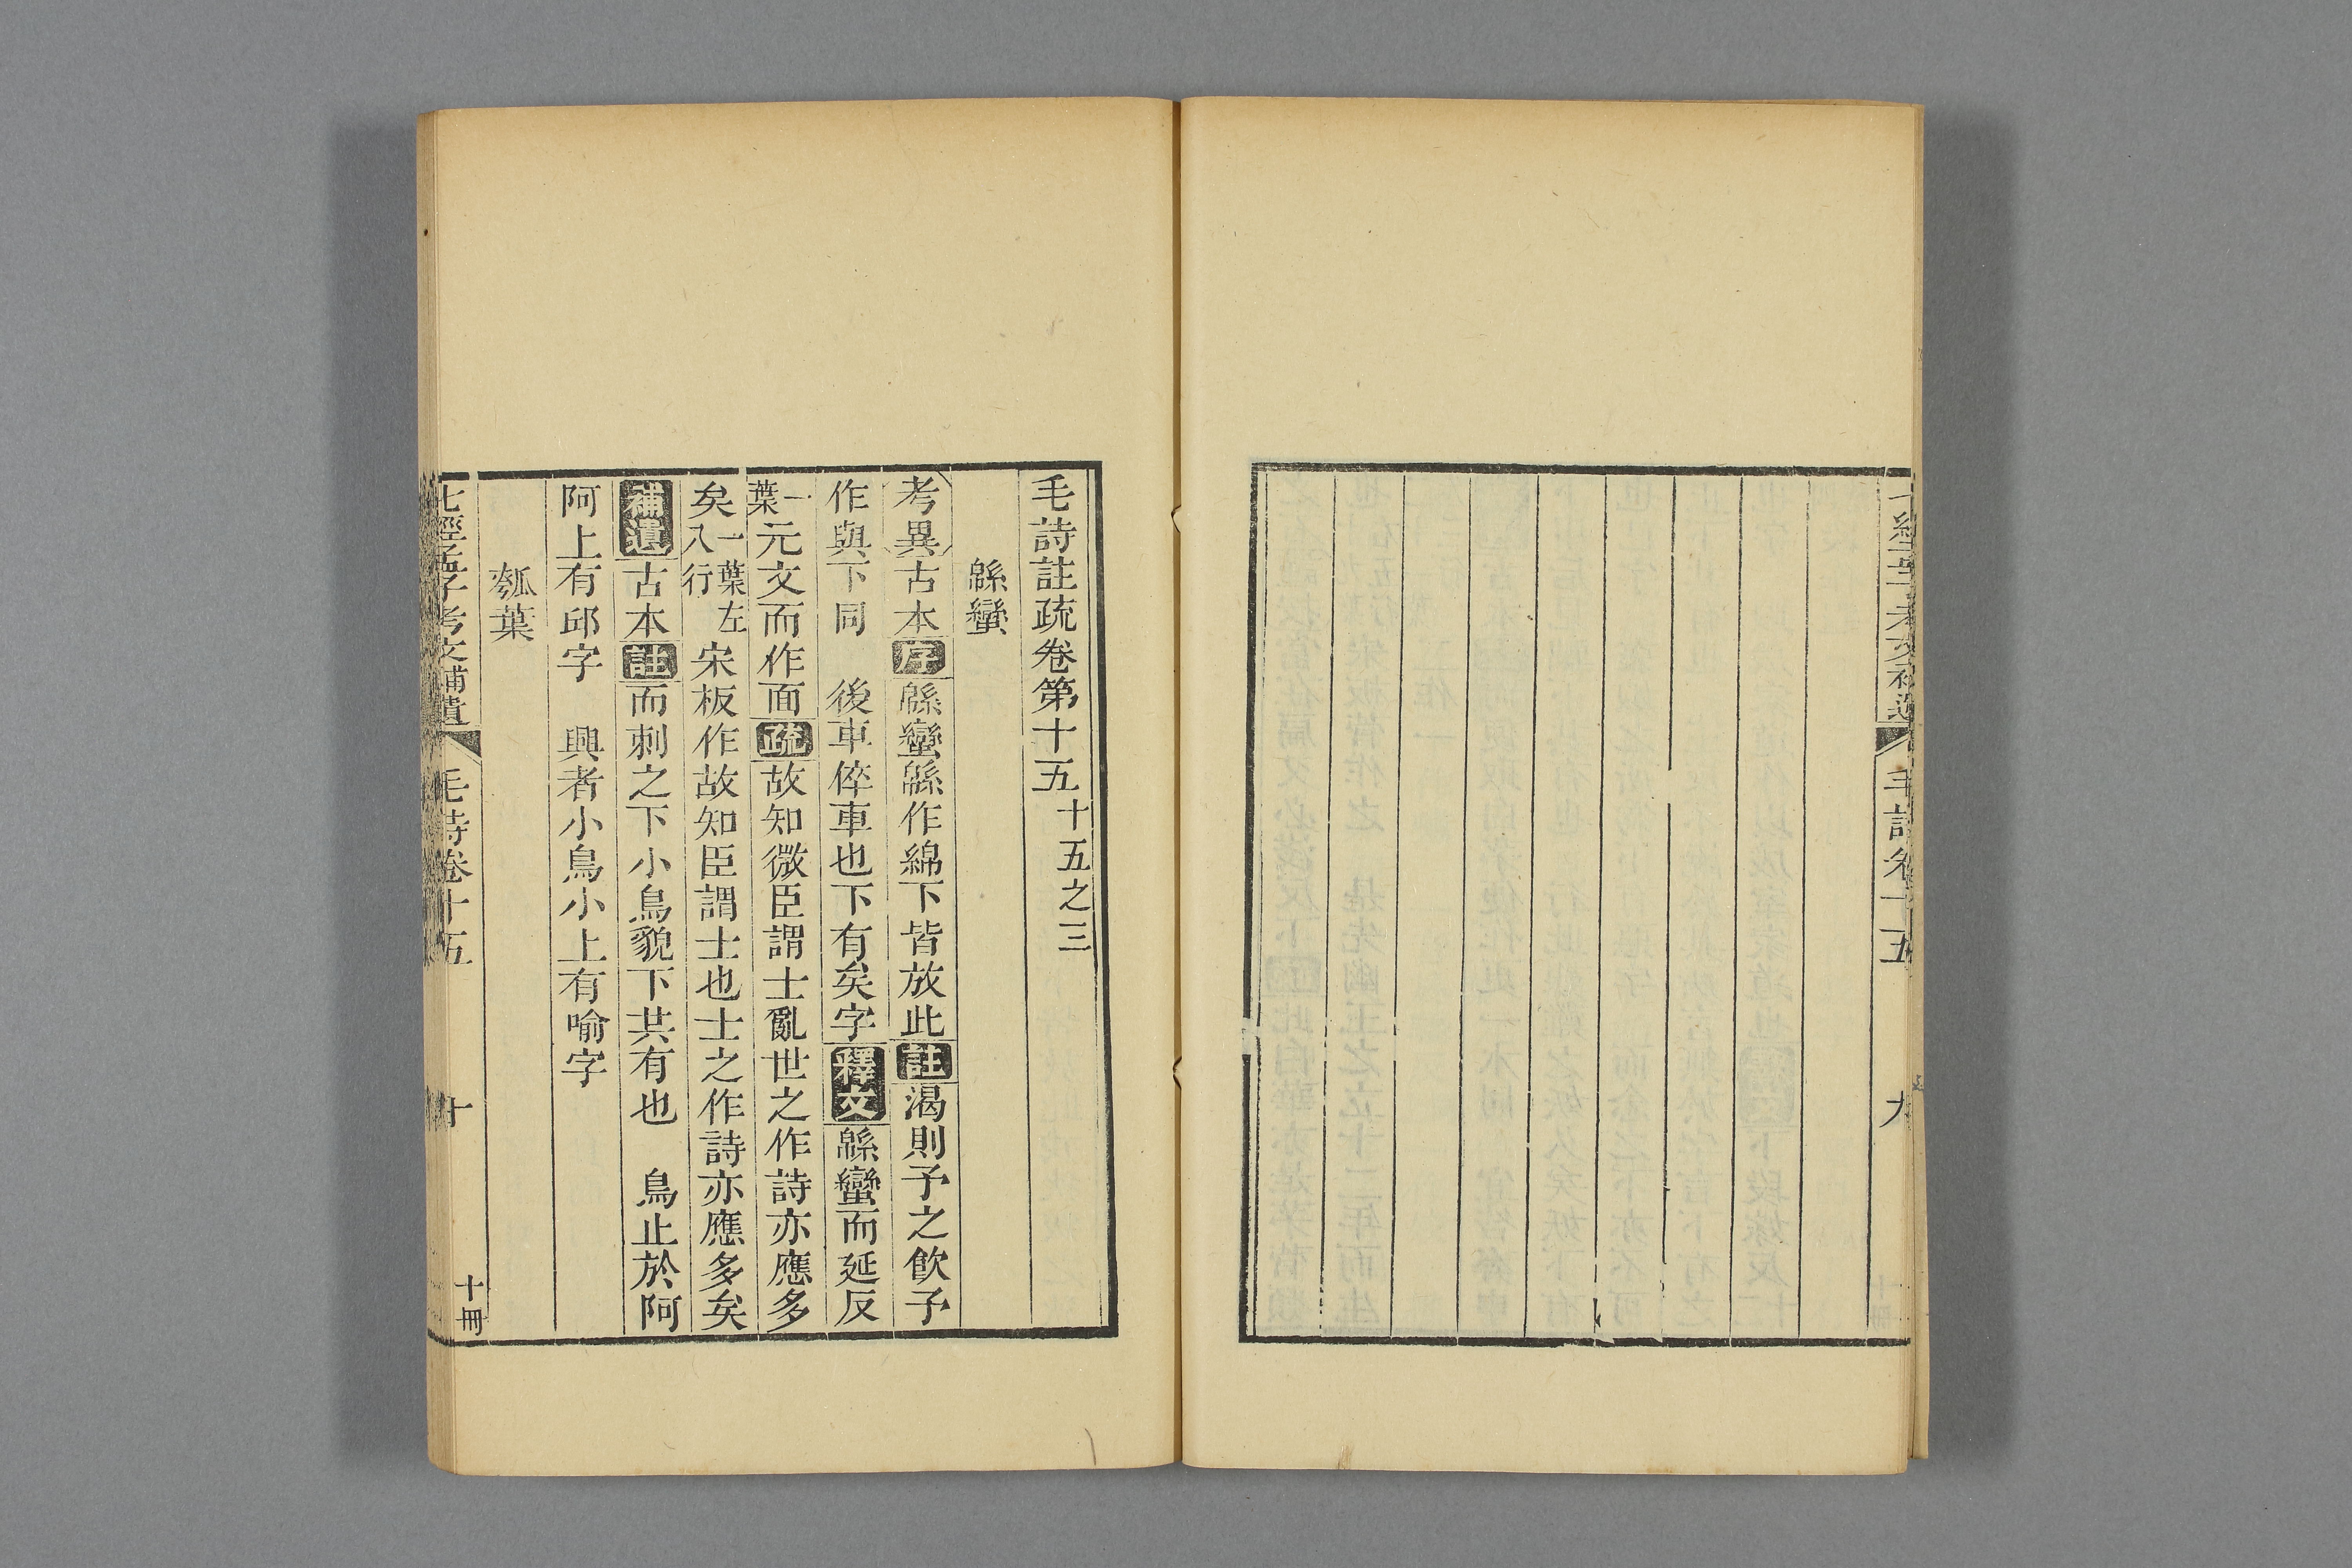 毛詩註疏卷第十五十五之三
緜蠻
考異古本序緜蠻緜作綿下皆放此註渴則予之飲予
作與下同　後車倅車也下有矣字釋文緜蠻而延反
一葉元文而作面疏故知微臣謂士亂世之作詩亦應多
矣一葉左八行宋板作故知臣謂士也士之作詩亦應多矣
補遺古本註而刺之下小鳥貌下共有也　鳥止於阿
阿上有邱字　興者小鳥小上有喻字
瓠葉
七經孟子考文補遺　毛詩卷十五　十　十冊